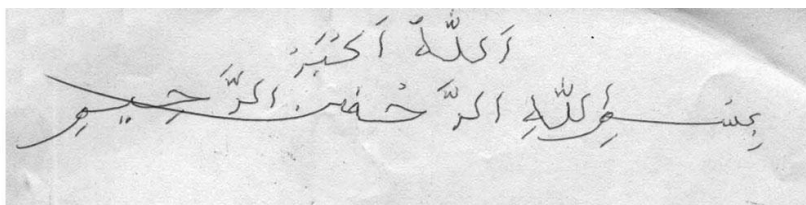 اَللّٰهُ اَكْبَرْ
بِسْمِ اللّٰهِ الرَّحْمٰنِ الرَّحِيمِ